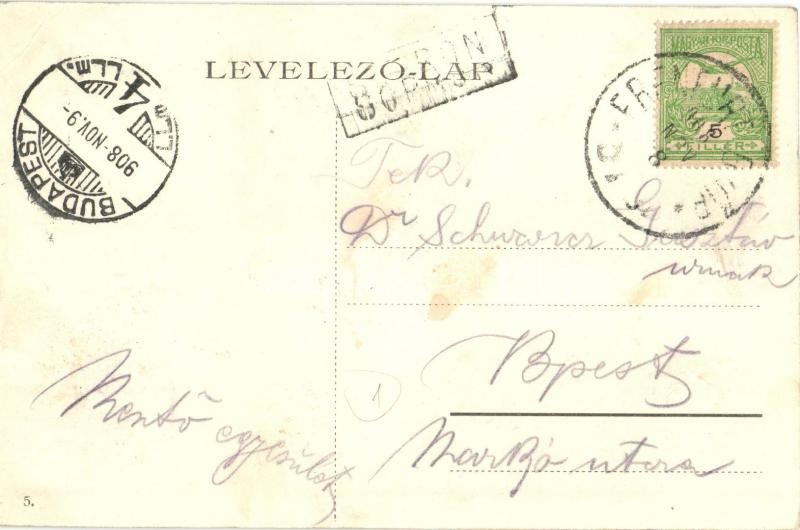 LEVELEZŐ-LAP
MAGYAR KIR. POSTA
5
FILLÉR
BUDAPEST
908 NOV. 9
4
Tek.
Dr Schwarz Gusztáv
urnak
Bpest
Markó utcza
Mentő
egyesület
1
5.